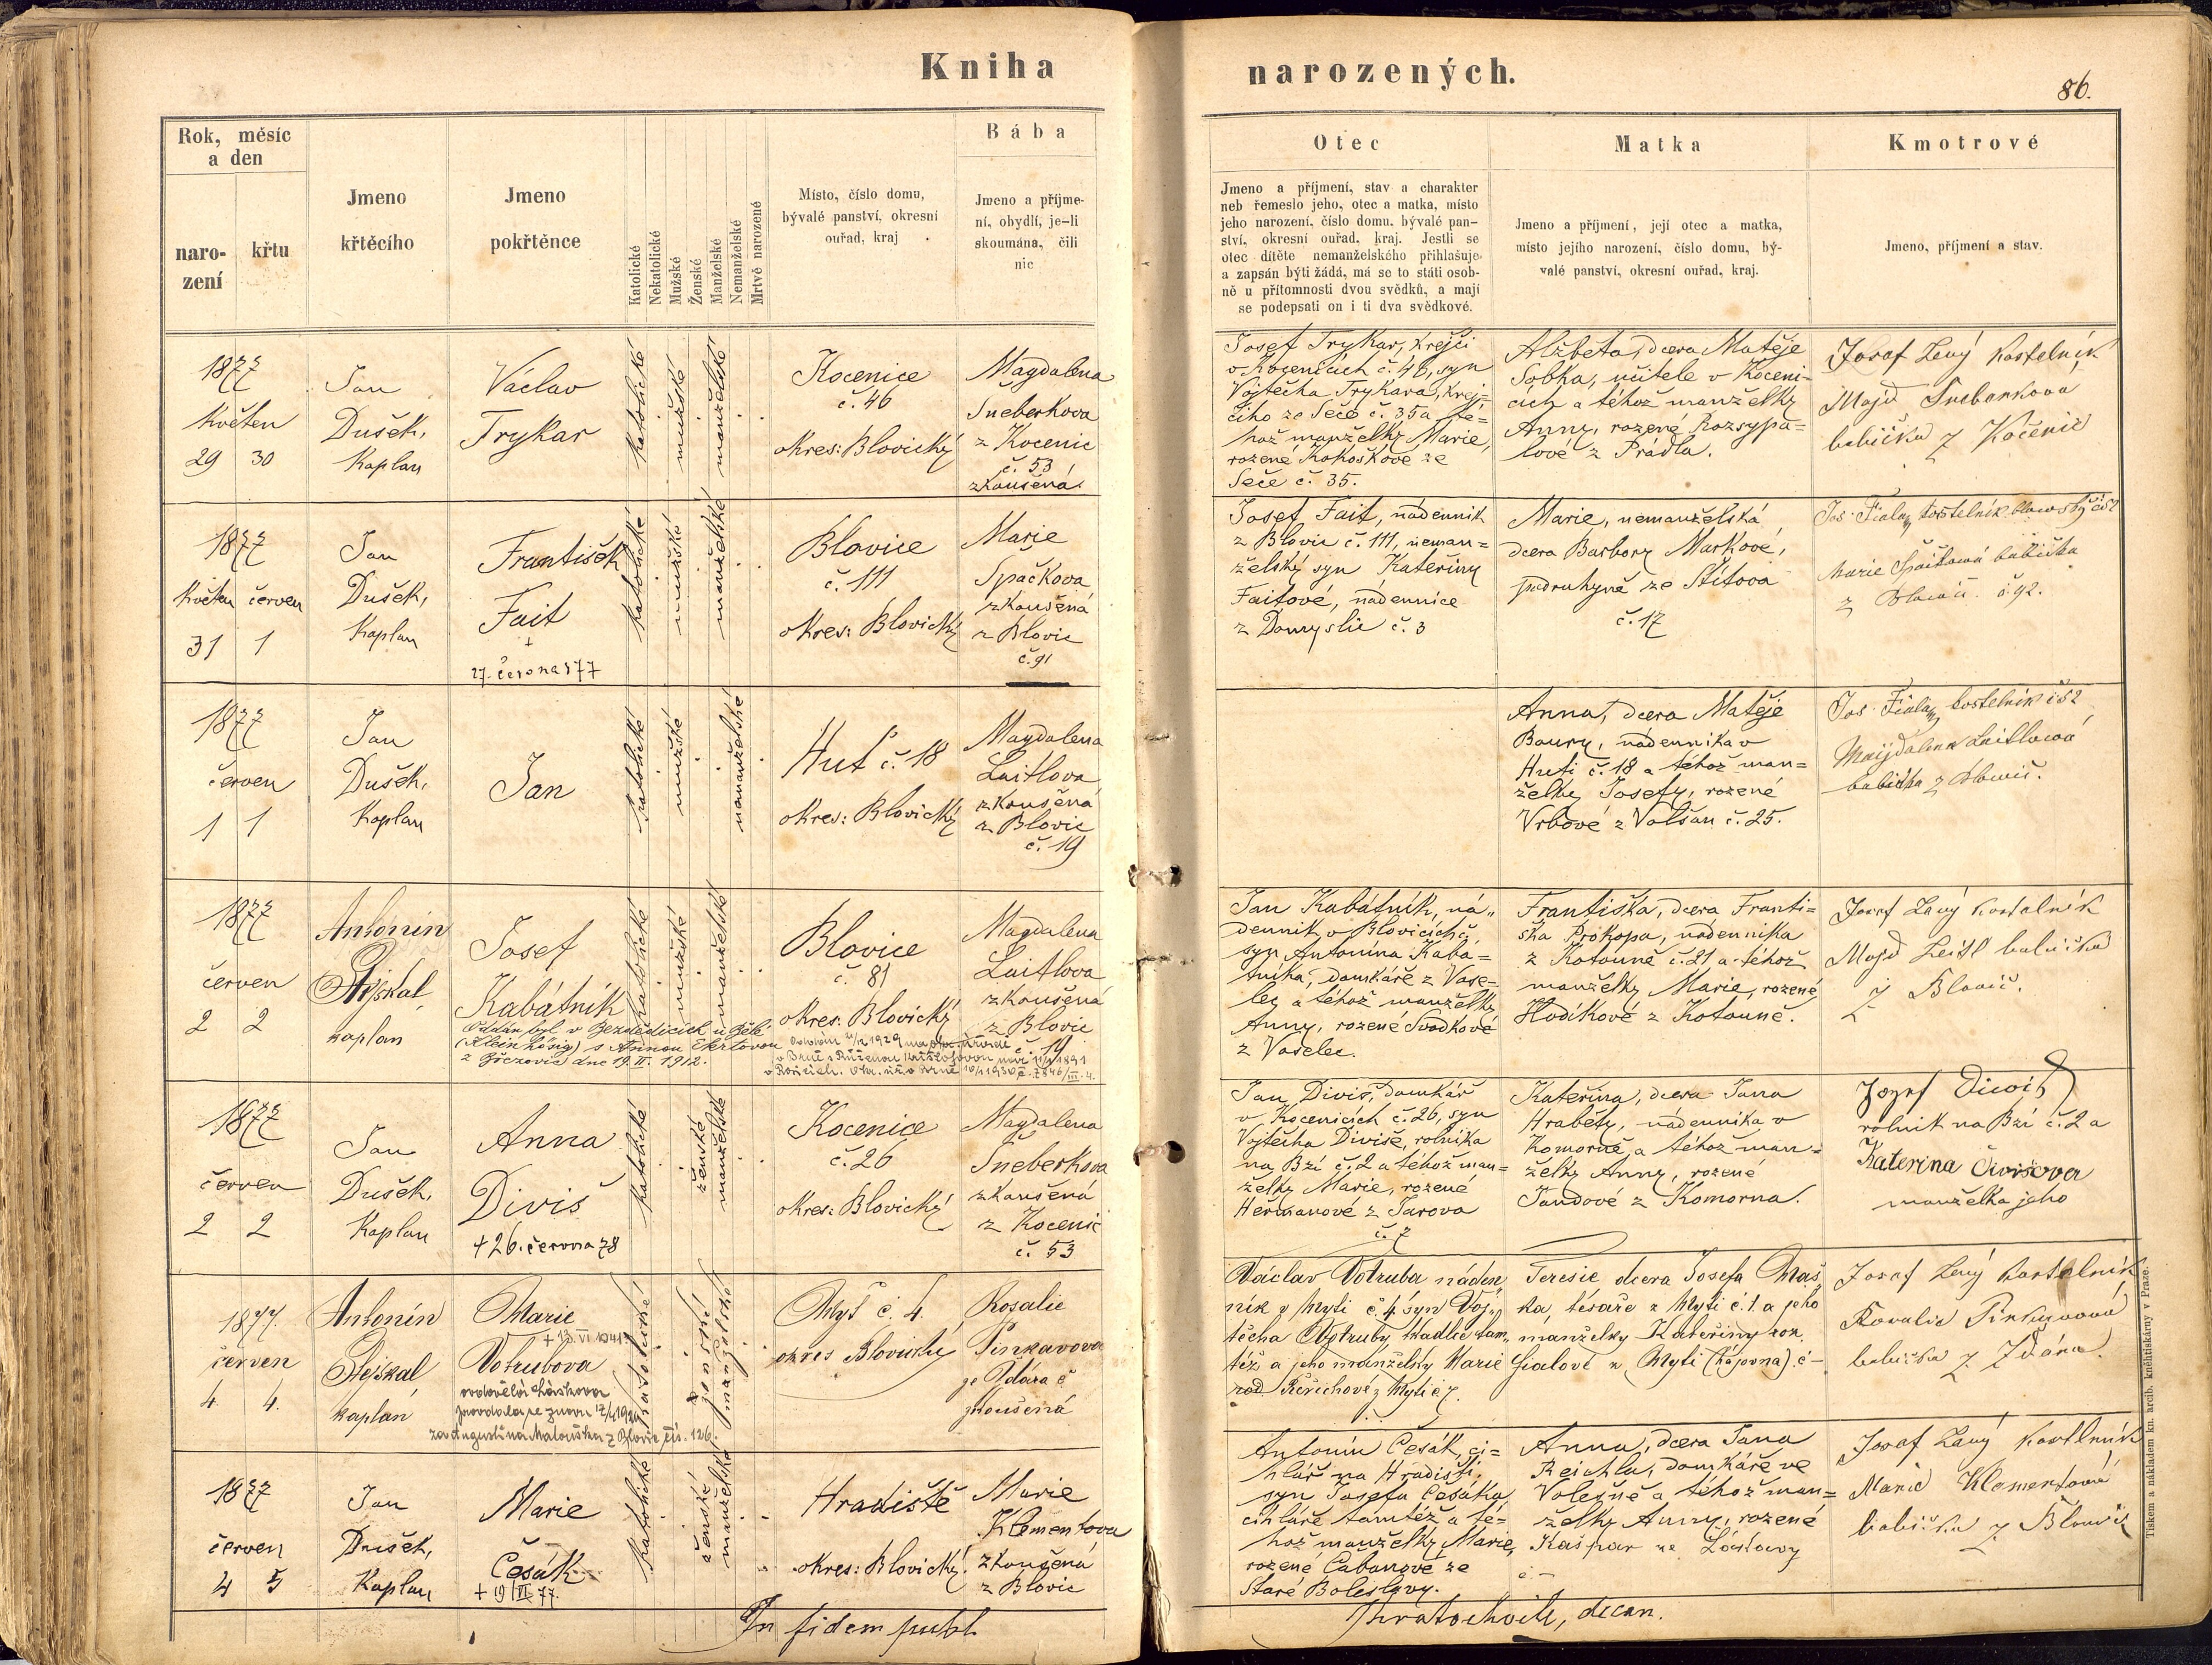 Kniha narozených.
86.
Rok, měsíc
a den
naro-
zení
křtu
Jmeno
křtěcího
Jmeno
pokřtěnce
Katolické
Nekatolické
Mužské
Ženské
Manželské
Nemanželské
Mrtvě narozené
Místo, číslo domu,
bývalé panství, okresní
ouřad, kraj
Bába
Jmeno a příjme-
ní, obydlí, je-li
skoumána, čili
nic
Otec
Jmeno a příjmení, stav a charakter
neb řemeslo jeho, otec a matka, místo
jeho narození, číslo domu, bývalé pan-
ství, okresní ouřad, kraj. Jestli se
otec dítěte nemanželského přihlašuje
a zapsán býti žádá, má se to státi osob-
ně u přítomnosti dvou svědků, a mají
se podepsati on i ti dva svědkové.
Matka
Jmeno a příjmení, její otec a matka,
místo jejího narození, číslo domu, bý-
valé panství, okresní ouřad, kraj.
Kmotrové
Jmeno, příjmení a stav.
1877
Květen
29 30
Jan
Dušek,
Kaplan
Václav
Trykar
katolické
mužské
manželské
Kocenice
č. 46
okres: Blovický
Magdalena
Šneberkova
z Kocenic
č. 53
zkoušená
Josef Trykar, krejčí
v Kocenicích č. 46, syn
Vojtěcha Trykara, krej=
čího ze Seče č. 35 a té=
hož manželky Marie,
rozené Kokoškové ze
Seče č. 35.
Alžběta, dcera Matěje
Sobka, učitele v Koceni-
cích a téhož manželky
Anny, rozené Rozsypa=
lové z Prádla.
Josef Levý kostelník
Majd Šneberkova
babička z Kocenic
1877
Květen červen
31 1
Jan
Dušek,
Kaplan
František
Fait
+
27. června 877
katolické
mužské
manželské
Blovice
č. 111
okres: Blovický
Marie
Špačkova
zkoušená
z Blovic
č. 91
Josef Fait, nádenník
z Blovic č. 111, neman=
želský syn Kateřiny
Faitové, nádennice
z Domyslic č. 3
Marie, nemanželská
dcera Barbory Markové,
podruhyně ze Štítova
č. 17
Jos. Fiala, kostelník blowský č 52
Marie Špačkowá babička
z Blowic č. 92.
1877
červen
1 1
Jan
Dušek,
Kaplan
Jan
katolické
mužské
nemanželské
Huť č. 18
okres: Blovický
Magdalena
Laitlova
zkoušená
z Blovic
č. 19
Anna, dcera Matěje
Boury, nádenníka v
Huti č. 18 a téhož man=
želky Josefy, rozené
Vrbové z Volšan č. 25.
Jos. Fiala, kostelník č 52
Majdalena Laitlowá
babička z Blowic.
1877
červen
2 2
Antonín
Stejskal
kaplan
Josef
Kabátník
katolické
mužské
manželské
Oddán byl v Bezdědicích u Běl.
(Klein Lösig) s Annou Ekrtovou
z Březovic dne 19. II. 1912.
Blovice
č. 81
okres. Blovický
Magdalena
Laitlova
zkoušená
z Blovic
č. 19
Jan Kabátník, ná„
denník v Blovicích č.
syn Antonína Kabá=
tníka, domkáře z Vose=
lec a téhož manželky
Anny, rozené Svodkové
z Voselec.
Františka, dcera Franti=
ška Prokopa, nádenníka
z Kotouně č. 21 a téhož
manželky Marie, rozené
Hodíkové z Kotouně.
Josef Levý kostelník
Majd Leitl babička
z Blovic.
1877
červen
2 2
Jan
Dušek,
Kaplan
Anna
Diviš
+ 26. června 78
katolické
ženské
manželské
Kocenice
č. 26
okres: Blovický
Magdalena
Šneberkova
zkoušená
z Kocenic
č. 53
Jan Diviš, domkář
v Kocenicích č. 26, syn
Vojtěcha Diviše, rolníka
na Bzí č. 2 a téhož man=
želky Marie, rozené
Heřmanové z Jarova
č. 7
Kateřina, dcera Jana
Hraběty, nádenníka v
Komorně a téhož man=
želky Anny, rozené
Jandové z Komorna.
Jozef Diwiš
rolnik na Bzi č. 2 a
Katerina Divišova
manželka jeho
1877.
červen
4. 4.
Antonín
Stejskal
kaplan
Marie
Votrubova
ovdovělá Láskova
provdala se znovu
za Augustina Matouška z Blovic čís. 126.
katolické
ženské
manželské
Myť č. 4
okres Blovický
Rosalie
Pinkavova
ze Ždára č
zkoušená
Václav Votruba náden„
ník v Myti č. 4 syn Voj„
těcha Votruby, tkadlce tam„
též a jeho manželky Marie
rod. Řeřichové z Myti č 7.
Teresie dcera Josefa Maš„
ka, tesaře z Myti č. 1. a jeho
manželky Kateřiny roz.
Fialové z Myti (hájovna) č –
Josef Levý kostelník
Rosalie Pinkavová
babička z Ždára.
1877
červen
4 5
Jan
Dušek,
Kaplan
Marie
Česák
+ 19/VI 77.
katolické
ženské
manželské
Hradiště
okres: Blovický.
Marie
Klementova
zkoušená
z Blovic
Antonín Česák, ci=
hlář na Hradišti,
syn Josefa Česáka,
cihláře tamtéž a té=
hož manželky Marie,
rozené Cabanové ze
Staré Boleslavy.
Anna, dcera Jana
Reichla, domkáře ve
Volešně a téhož man=
želky Anny, rozené
Kašpar ze Lhotavy
č. –
Josef Levý kostelník
Marie Klementová
babička z Blovic
In fidem publ.
Kratochvíle, decan.
Tiskem a nákladem kn. arcib. knihtiskárny v Praze.